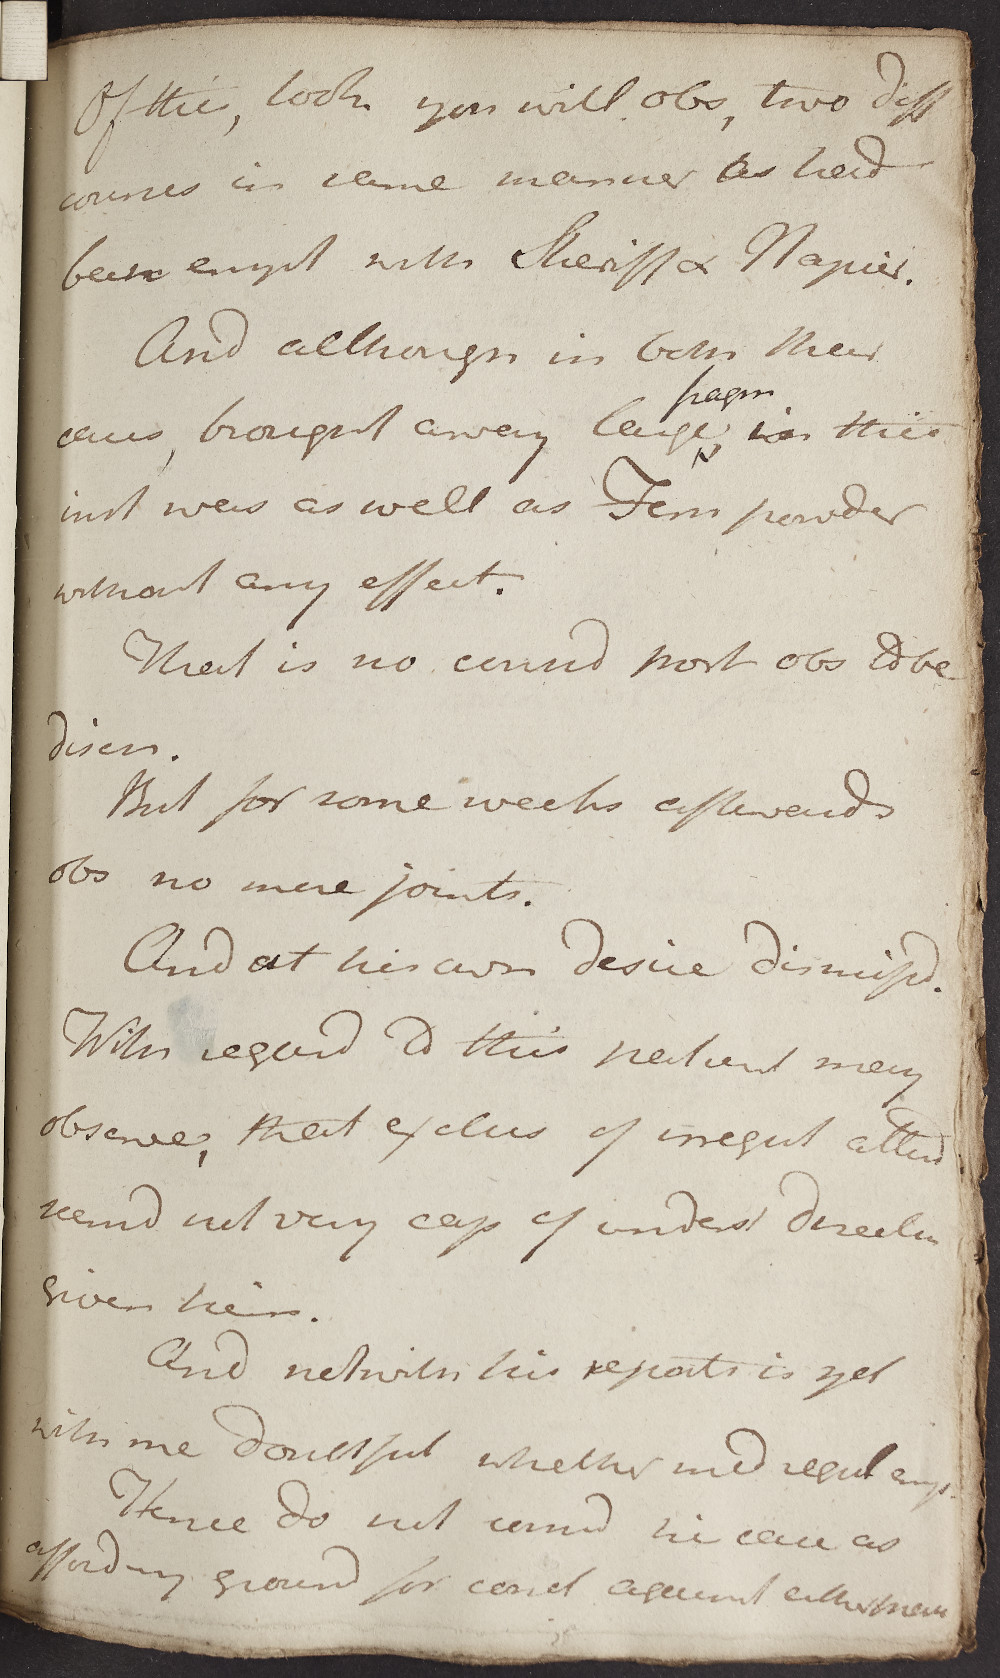 Of this, took you will obs, two diff
courses in same manner as had
been empl with Sheriff & Napier.
And although in both these
cases, brought away large
fragm
in this
inst was as well as Fern powder
without any effect.
That is no consid port obs to be
discn.
But for some weeks afterwards
obs no more joints.
And at his own desire dismissd.
With regard to this patient may
observe, that exclus of irregul attend
seemd not very cap of underst directn
given him.
And notwith his reports is yet
with me doubtful whether med regul emp.
Hence do not consid his case as
affording ground for concl against either mean